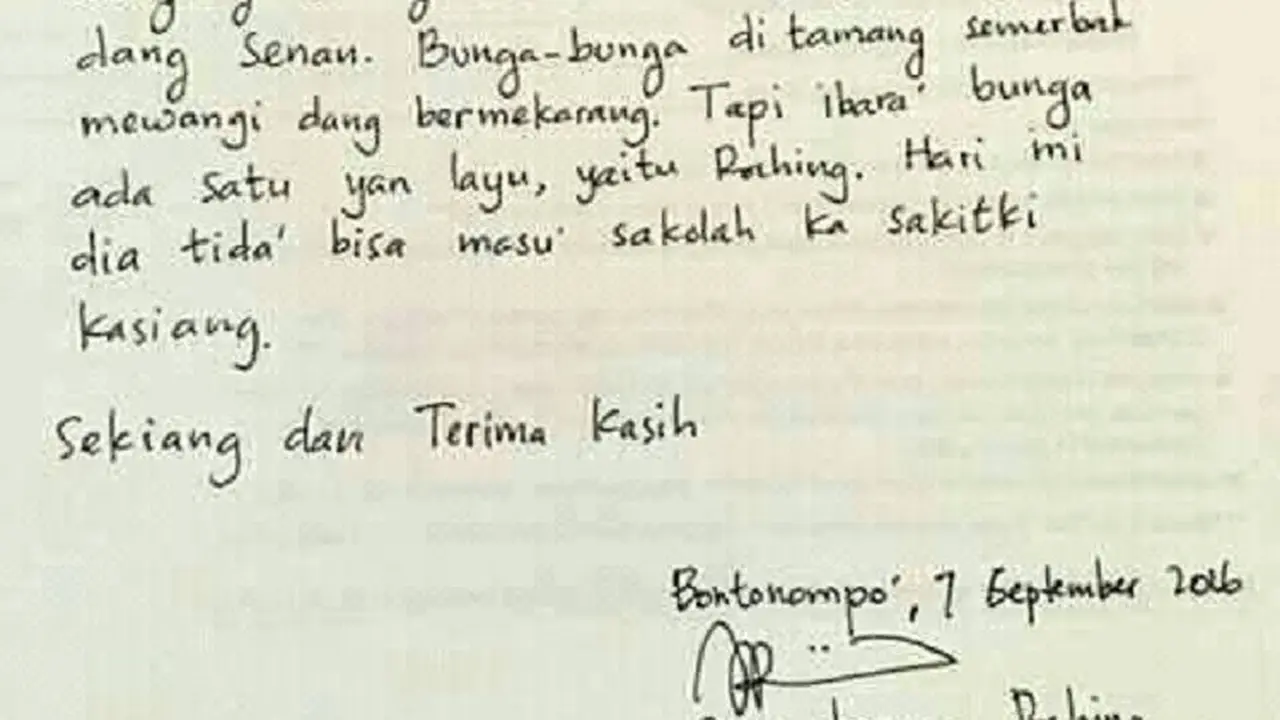 dang senan. Bunga-bunga di tamang semerbak
mewangi dang bermekarang. Tapi ibara' bunga
ada satu yan layu, yaitu Roching. Hari ini
dia tida' bisa masu' sakolah ka sakitki
kasiang.
Sekiang dan Terima Kasih
Bontonompo', 7 September 2016